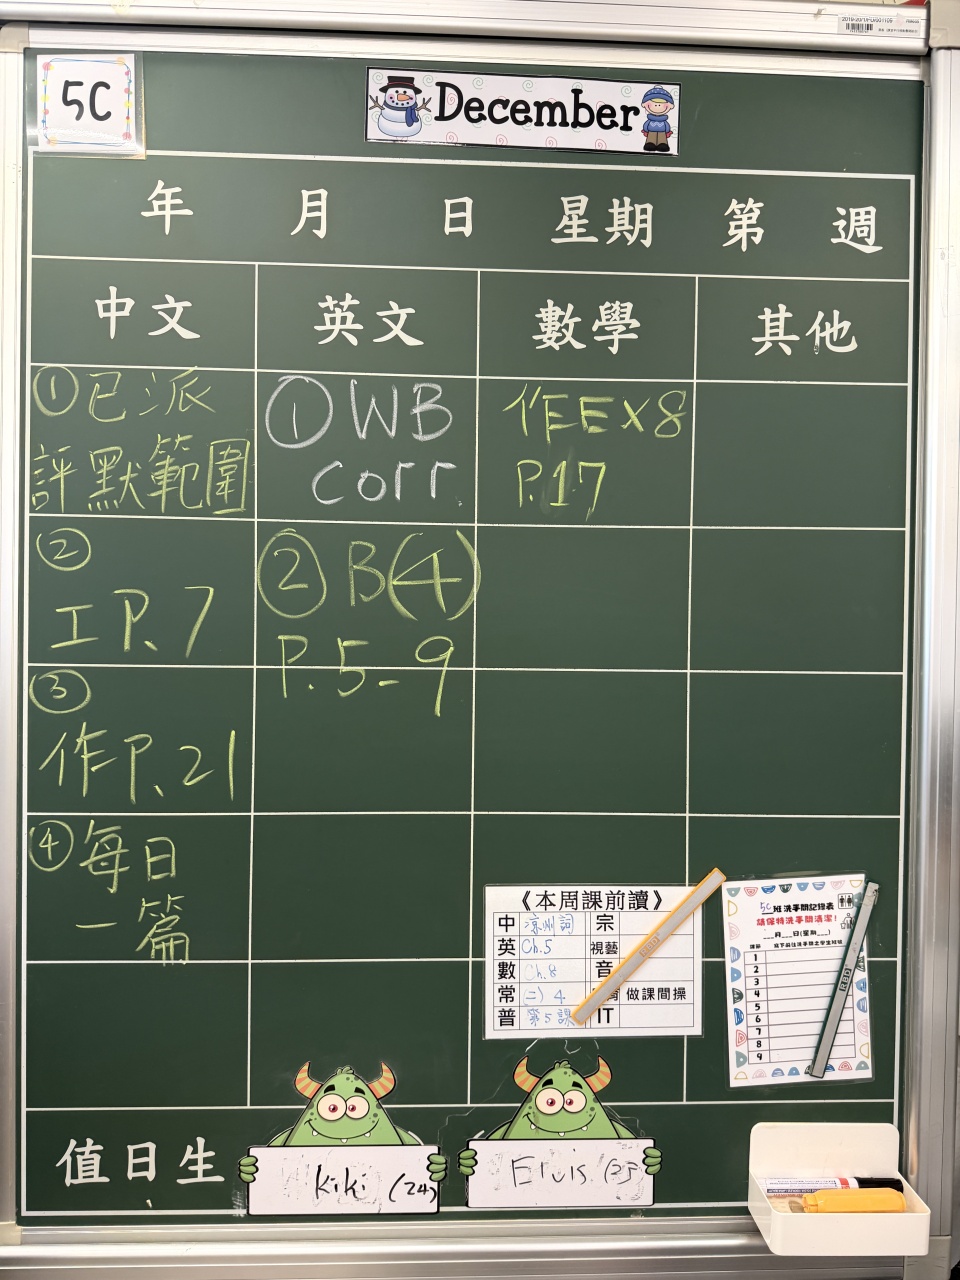 5C
December
年 月 日 星期 第 週
中文 英文 數學 其他
①已派
評默範圍
②
工P.7
③
作P.21
④每日
一篇
①WB
corr.
②B(4)
P.5-9
作EEX8
P.17
《本周課前讀》
中 涼州詞 宗
英 Ch.5 視藝
數 Ch.8 音
常 (二) 4 做課間操
普 第5課 IT
5C班洗手間記錄表
請保持洗手間清潔!
___月___日(星期___)
1
2
3
4
5
6
7
8
9
值日生
Kiki (24)
Elvis